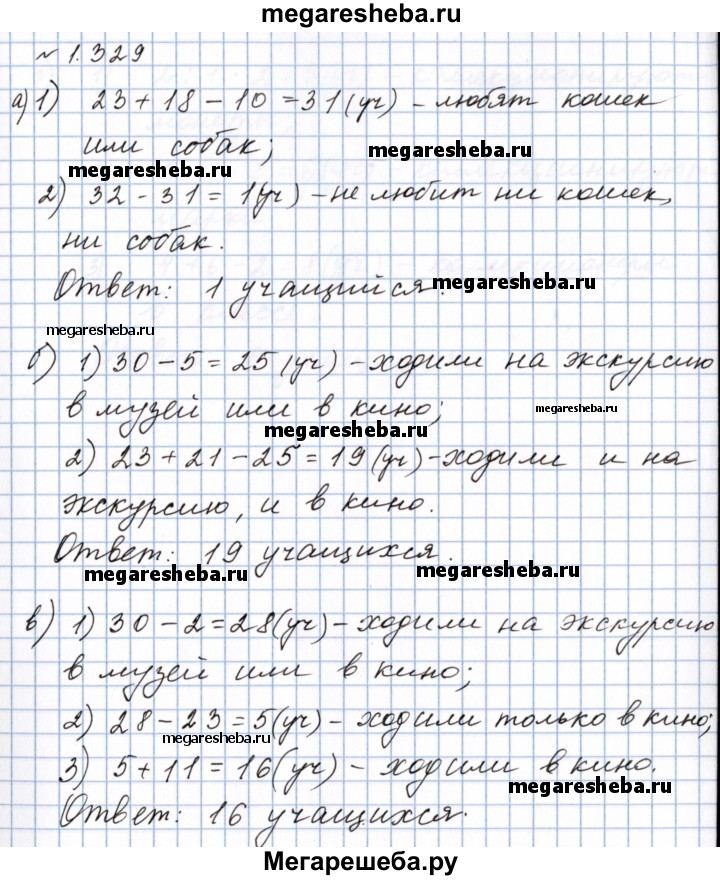 megaresheba.ru
№ 1.329
а) 1) 23 + 18 - 10 = 31 (уч) - любят кошек
или собак;
megaresheba.ru
megaresheba.ru
2) 32 - 31 = 1 (уч) - не любит ни кошек,
ни собак.
Ответ: 1 учащийся.
megaresheba.ru
megaresheba.ru
б) 1) 30 - 5 = 25 (уч) - ходили на экскурсию
в музей или в кино;
megaresheba.ru
megaresheba.ru
2) 23 + 21 - 25 = 19 (уч) - ходили и на
экскурсию, и в кино.
Ответ: 19 учащихся.
megaresheba.ru
megaresheba.ru
в) 1) 30 - 2 = 28 (уч) - ходили на экскурсию
в музей или в кино;
2) 28 - 23 = 5 (уч) - ходили только в кино;
megaresheba.ru
3) 5 + 11 = 16 (уч) - ходили в кино.
megaresheba.ru
Ответ: 16 учащихся.
Мегарешеба.ру